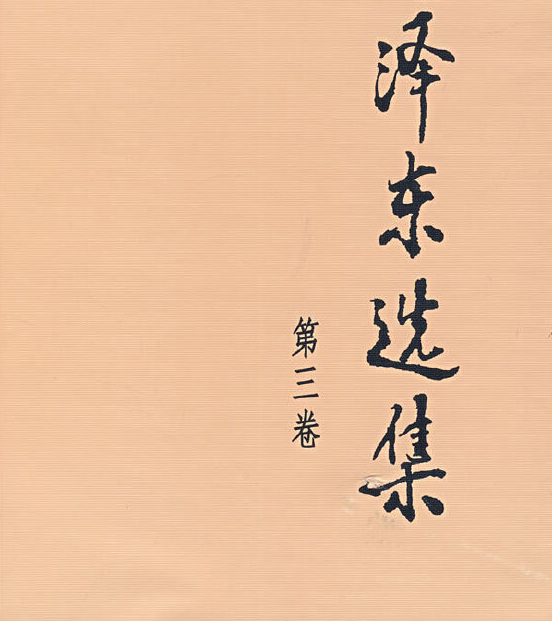 泽东选集
第三卷